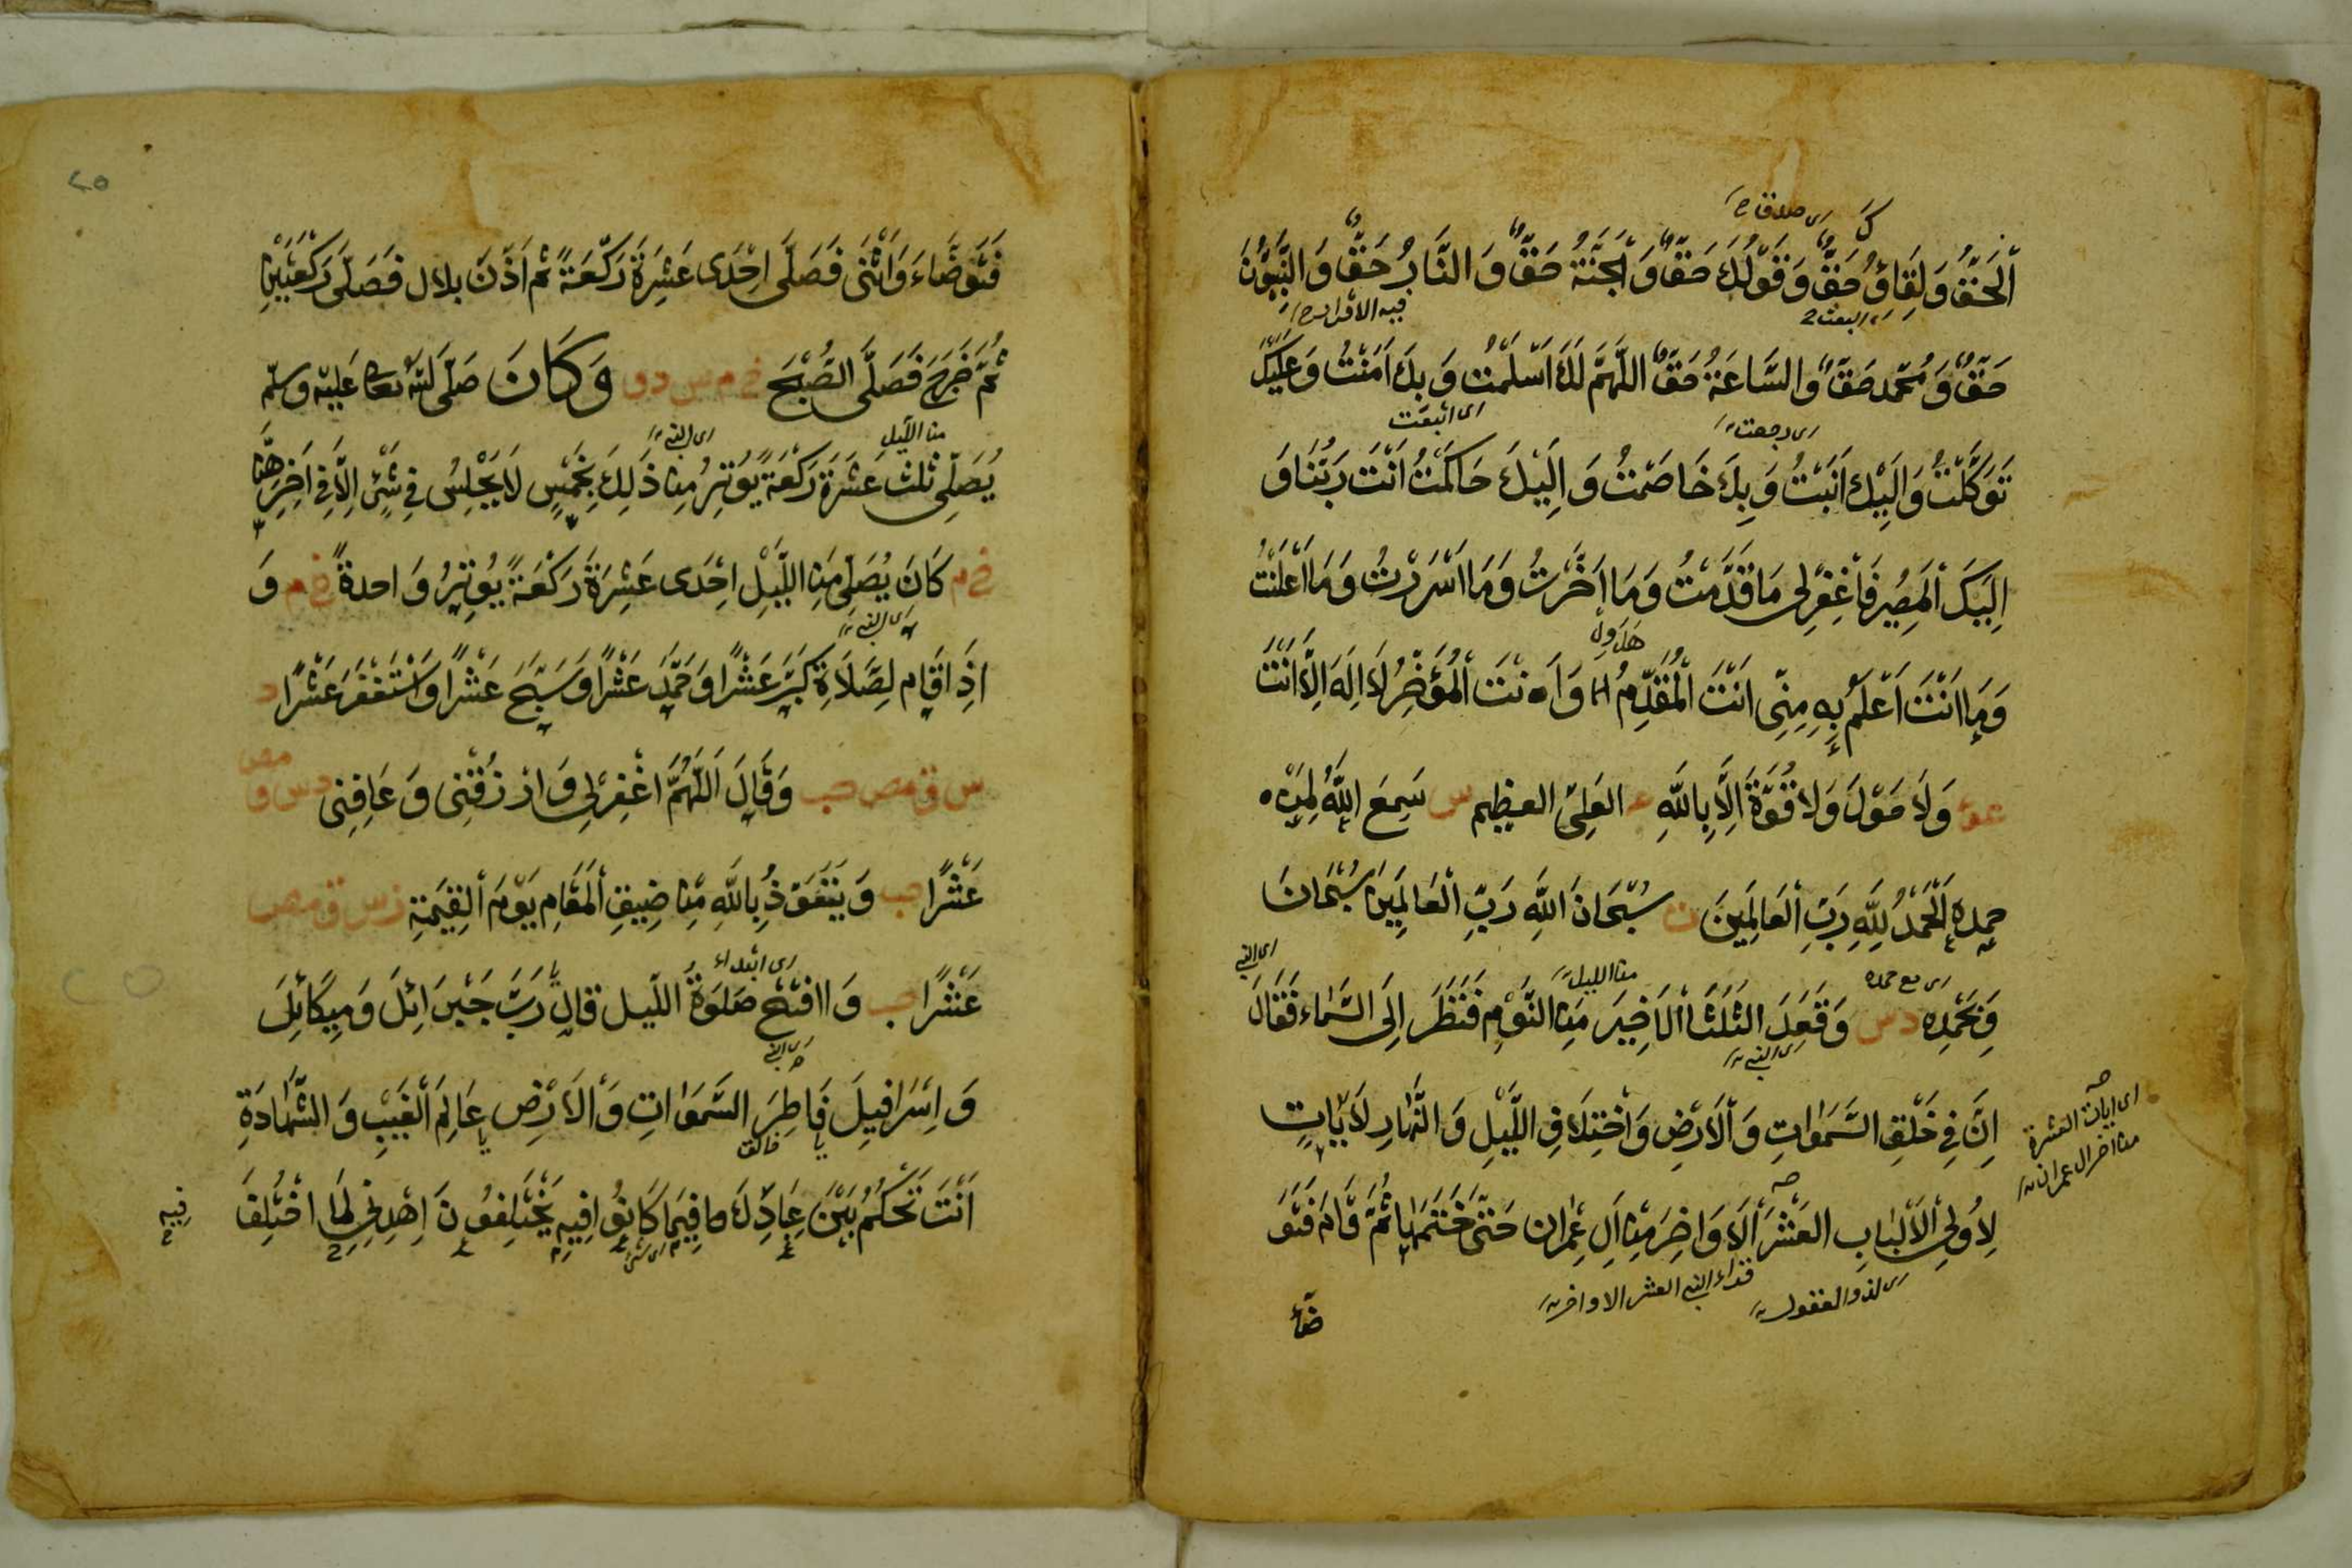 اي صدق
ٱلْحَقُّ وَلِقَاؤُكَ حَقٌّ وَقَوْلُكَ حَقٌّ وَٱلْجَنَّةُ حَقٌّ وَالنَّارُ حَقٌّ وَالنَّبِيُّونَ
البعث
حَقٌّ وَمُحَمَّد حَقٌّ وَالسَّاعَةُ حَقٌّ اللَّهُمَّ لَكَ اَسْلَمْتُ وَبِكَ اٰمَنْتُ وَعَلَيْكَ
اي رجعت
تَوَكَّلْتُ وَاِلَيْكَ اَنَبْتُ وَبِكَ خَاصَمْتُ وَاِلَيْكَ حَاكَمْتُ اَنْتَ رَبُّنَا وَ
اِلَيْكَ ٱلْمَصِيرُ فَاغْفِرْلِى مَا قَدَّمْتُ وَمَا اَخَّرْتُ وَمَا اَسْرَرْتُ وَمَا اَعْلَنْتُ
وَمَا اَنْتَ اَعْلَمُ بِهِ مِنِّى اَنْتَ ٱلْمُقَدِّمُ وَاَنْتَ ٱلْمُؤَخِّرُ لَا اِلَهَ اِلَّا اَنْتَ
عو وَلَا حَوْلَ وَلَا قُوَّةَ اِلَّا بِاللّٰهِ ع العَلِىِّ العظِيم س سَمِعَ اللّٰهُ لِمَنْ
حمده اَلْحَمْدُ لِلّٰهِ رَبِّ ٱلْعَالَمِينَ ت سُبْحَانَ اللّٰهِ رَبِّ ٱلْعَالَمِينَ سُبْحَانَ
اي مع حمده من الليل اى النبي
وَبِحَمْدِهِ د س وَقَعَدَ الثُّلُثَ ٱلْاَخِيرَ مِنَ النَّوْمِ فَنَظَرَ اِلَى السَّمَاء فَقَالَ
اى النبي
اِنَّ فِى خَلْقِ السَّمٰوَاتِ وَٱلْاَرْضِ وَٱخْتِلَافِ اللَّيْلِ وَالنَّهَارِ لَاٰيَاتٍ
اى ايات العشرة
من اخر ال عمران
لِاُولِى ٱلْاَلْبَابِ العَشْرَ ٱلْاَوَاخِرَ مِنْ اٰلِ عِمْرَان حَتَّى خَتَمَهَا ثُمَّ قَامَ فَتَوَ
اى لذو العقول
قراء النبي العشر الاواخر
ضأ
٢٥
فَتَوَضَّاءَ وَاسْتَنَّ فَصَلَّى اِحْدَى عَشِرَةَ رَكْعَةً ثُم اَذَّنَ بلال فَصَلَّى رَكْعَتَيْنِ
ثُمَّ خَرَجَ فَصَلَّى الصُّبْحَ خ م س د ق وَكَانَ صَلَّى اللّٰهُ تعالى عَلَيْهِ وسلّم
من الليل اى النبي
يُصَلِّى ثلٰث عَشَرَةَ رَكْعَةً يُوتِرُ مِنْ ذَلِكَ بِخَمْسٍ لَا يَجْلِسُ فِى شَىْءٍ اِلَّا فِى اٰخِرِهِنَّ
خ م كَانَ يُصَلِّى مِنَ اللَّيْلِ اِحْدَى عَشِرَةَ رَكْعَةً يُوتِرُ وَاحدةً خ م وَ
اى النبي
اذِا قَام لِصَّلَاةِ كَبَّرَ عَشْرًا وَحَمَّدَ عَشْرًا وَسَبَّحَ عَشْرًا وَاسْتَغْفَرَ عَشْرًا د
س ق مص حب وَقَالَ اَللّٰهُمَّ اغْفِرْلِى وَارْزُقْنِى وَعَافِنِى د س ق مص
عَشْرًا حب وَيَتَعَوَّذُ بِاللّٰهِ مِنْ ضِيقِ ٱلْمَقَامِ يَوْمَ ٱلْقِيٰمَةِ د س ق مص
اى ابتداء
عَشْرًا حب وَاافْتَتَحَ صَلٰوَةَ اللّيل قال رَبَّ جَبْرَائِلَ وَمِيكَائِلَ
اى النبي
وَاِسْرَافِيلَ فَاطِرَ السَّمٰوَاتِ وَٱلْاَرْضِ عَالِمَ ٱلْغَيْبِ وَالشَّهَادَةِ
خالق
اَنْتَ تَحْكُمُ بَيْنَ عِبَادِكَ فِيمَا كَانُوا فِيهِ يَخْتَلِفُونَ اِهْدِنِى لِمَا اخْتُلِفَ
فِيهِ